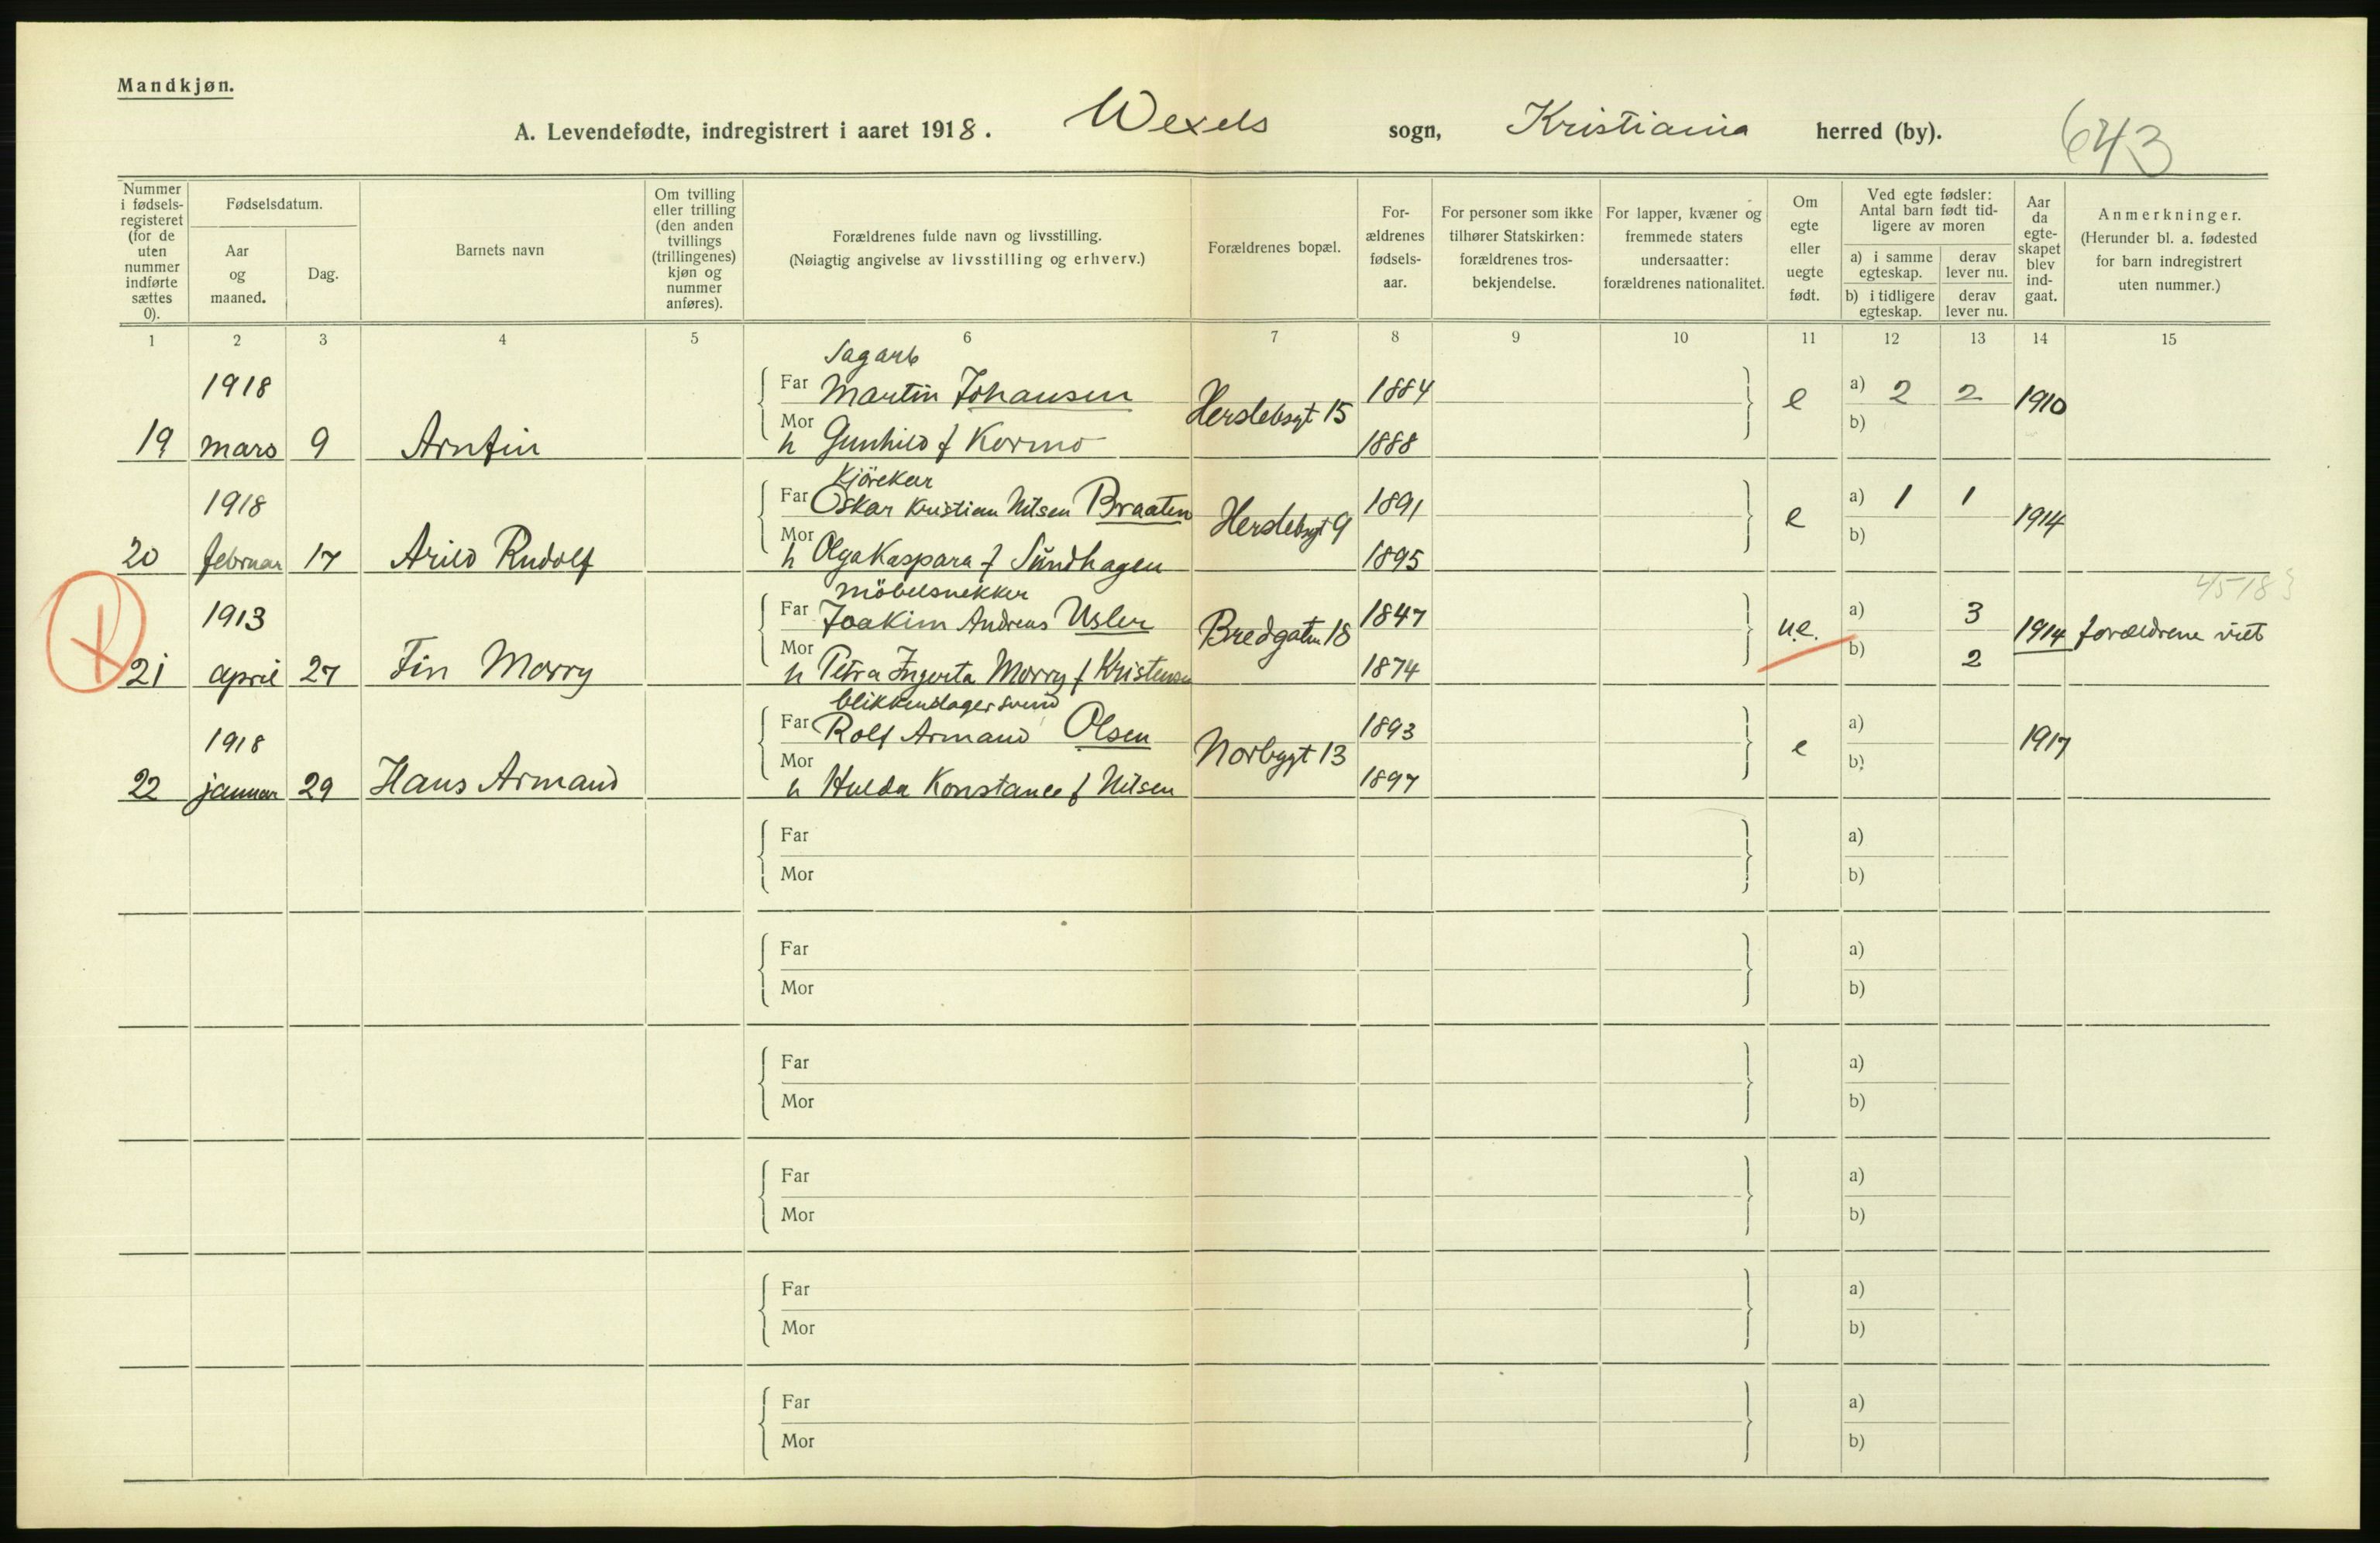 Mandkjøn.
A. Levendefødte, indregistrert i aaret 1918. Wexels sogn, Kristiania herred (by). 643
Nummer i fødsels-registeret (for de uten nummer indførte sættes 0).
Fødselsdatum.
Aar og maaned.
Dag.
Barnets navn
Om tvilling eller trilling (den anden tvillings (trillingenes) kjøn og nummer anføres).
Forældrenes fulde navn og livsstilling.
(Nøiagtig angivelse av livsstilling og erhverv.)
Forældrenes bopæl.
For-ældrenes fødsels-aar.
For personer som ikke tilhører Statskirken: forældrenes tros-bekjendelse.
For lapper, kvæner og fremmede staters undersaatter: forældrenes nationalitet.
Om egte eller uegte født.
Ved egte fødsler: Antal barn født tid-ligere av moren
a) i samme egteskap. derav lever nu.
b) i tidligere egteskap. derav lever nu.
Aar da egte-skapet blev ind-gaat.
Anmerkninger.
(Herunder bl. a. fødested for barn indregistrert uten nummer.)
1 2 3 4 5 6 7 8 9 10 11 12 13 14 15
Sagarb
1918 Far Martin Johansen Herslebsgt 15 1884 e a) 2 2 1910
19 mars 9 Arnfin Mor h Gunhild f Kormo 1888 b)
Kjörekar
1918 Far Oskar Kristian Nilsen Braaten Herslebsgt 9 1891 e a) 1 1 1914
20 februar 17 Arild Rudolf Mor h Olga Kaspara f Sundhagen 1895 b)
möbelsnekker
1913 Far Joakim Andreas Usler Bredgaten 18 1847 u.e. a) 3 1914 forældrene viet
21 april 27 Fin Morry Mor h Petra Ingerta Morry f Kristensen 1874 b) 2
blikkenslagersvend
1918 Far Rolf Armand Olsen Norbygt 13 1893 e a) 1917
22 januar 29 Hans Armand Mor h Hulda Konstance f Nilsen 1897 b)
Far a)
Mor b)
Far a)
Mor b)
Far a)
Mor b)
Far a)
Mor b)
Far a)
Mor b)
Far a)
Mor b)